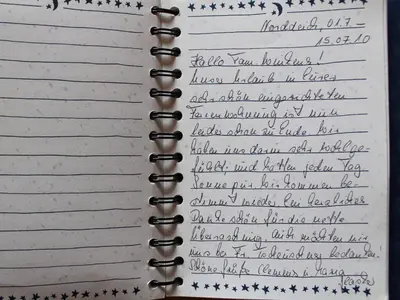 Norddeich, 01.7 –
15.07.10
Hallo Fam.
unser Urlaub in Eurer
sehr schön eingerichteten
Ferienwohnung ist nun
leider schon zu Ende. Wir
haben uns darin sehr wohlge-
fühlt und hatten jeden Tag
Sonne pur. Wir kommen be-
stimmt wieder. Ein herzliches
Dankeschön für die nette
Überraschung, auch möchten wir
uns bei Fr. bedanken!
Schöne Grüße Clemens u. Maria